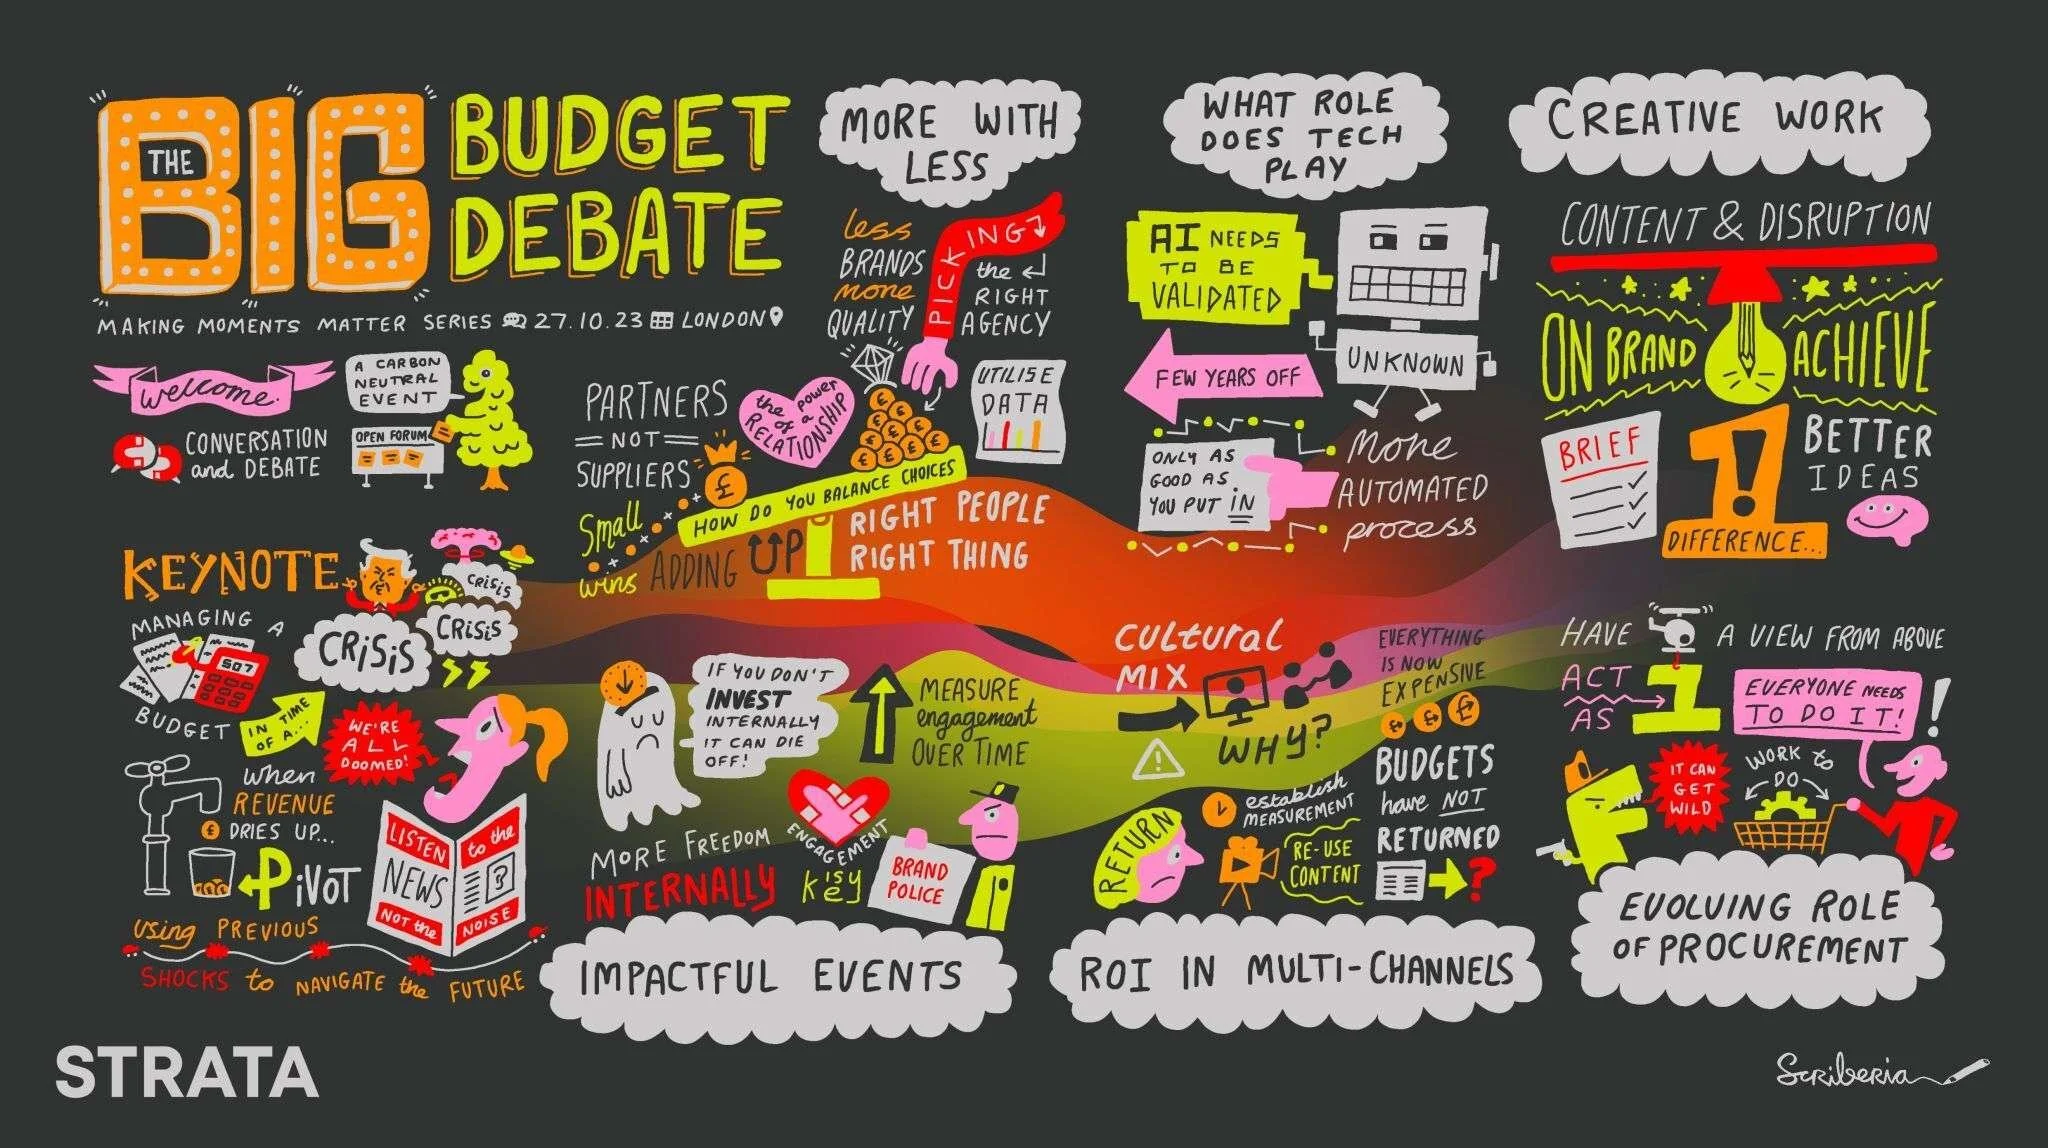 THE
BIG
BUDGET
DEBATE
MAKING MOMENTS MATTER SERIES 27.10.23 LONDON
welcome
A CARBON
NEUTRAL
EVENT
CONVERSATION
and DEBATE
OPEN FORUM
KEYNOTE
MANAGING A
BUDGET
507
IN TIME
OF A...
CRISIS
CRISIS
CRISIS
WE'RE
ALL
DOOMED!
when
REVENUE
£ DRIES UP...
PIVOT
LISTEN
to the
NEWS
?
NOT the
NOISE
using PREVIOUS
SHOCKS to NAVIGATE the FUTURE
MORE WITH
LESS
less
BRANDS
more
QUALITY
PICKING
the
RIGHT
AGENCY
PARTNERS
NOT
SUPPLIERS
the power
of a
RELATIONSHIP
UTILISE
DATA
£
£ £
£ £ £
£ £ £ £
£
HOW DO YOU BALANCE CHOICES
Small
wins
ADDING UP
RIGHT PEOPLE
RIGHT THING
IF YOU DON'T
INVEST
INTERNALLY
IT CAN DIE
OFF!
MEASURE
engagement
OVER TIME
MORE FREEDOM
INTERNALLY
ENGAGEMENT
is
key
BRAND
POLICE
IMPACTFUL EVENTS
WHAT ROLE
DOES TECH
PLAY
AI NEEDS
TO BE
VALIDATED
UNKNOWN
FEW YEARS OFF
ONLY AS
GOOD AS
YOU PUT IN
MORE
AUTOMATED
process
CULTURAL
MIX
WHY?
EVERYTHING
IS NOW
EXPENSIVE
£ £ £
RETURN
establish
MEASUREMENT
RE-USE
CONTENT
BUDGETS
have NOT
RETURNED
?
ROI IN MULTI-CHANNELS
CREATIVE WORK
CONTENT & DISRUPTION
ON BRAND
ACHIEVE
BRIEF
1
DIFFERENCE...
BETTER
IDEAS
HAVE A VIEW FROM ABOVE
ACT
AS
1
EVERYONE NEEDS
TO DO IT!
!
IT CAN
GET
WILD
WORK to
DO
EVOLVING ROLE
OF PROCUREMENT
STRATA
Scriberia